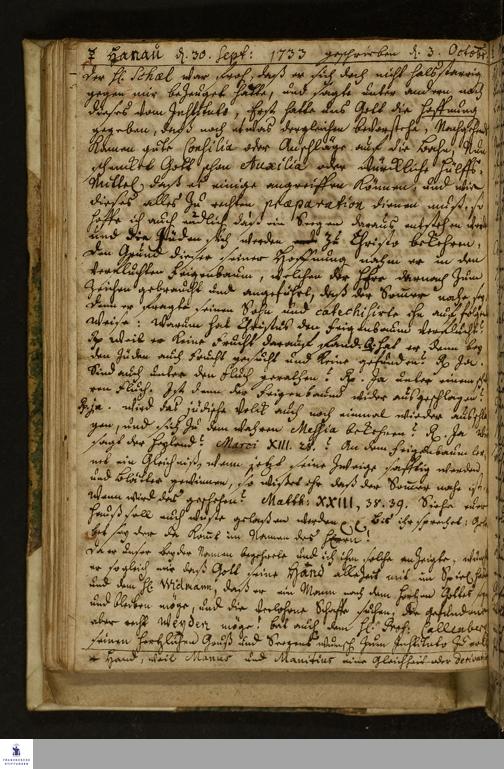 Hanau d. 30. Sept: 1733 geschrieben d. 3. Octobr
Der H. Schæl war froh, daß er sich doch nicht halsstarrig
gegen mir bezeuget hätte, und sagte unter andern nach
dieses vom Instituto, Erst hatte uns Gott die Hoffnung
gegeben, daß noch etwas dergleichen bevorstehe, Nachgehends
kamen gute Consilia oder Anschläge auf die Bahn, Nun
schencket Gott schon Auxilia oder würcklich Hülffs-
Mittel, daß es einige angreiffen können, und wie
dieses alles zu rechter præparation dienen muß, so
hoffe ich auch endlich daß ein Seegen daraus entstehen werde
und die Jüden sich werden zu Christo bekehren,
Den Grund dieser seiner Hoffnung nahm er in dem
verfluchten Feigenbaum, welchen der HErr darnach zum
Zeichen gebraucht und angeführt, daß der Sommer nahe sey
Denn er fragte seinen Sohn und catechisirte ihn auf folgen
Weise: Warum hat Christus den Feigenbaum verflucht?
Rx weil er keine Frucht darauf fand. Hat er denn bey
den Jüden auch Frucht gesucht und keine gefunden? Rx Ja.
Sind auch unter den Fluch gerathen? Rx. Ja unter einem
ren Fluch. Ist denn der Feigenbaum wieder ausgeschlagen?
Rx ja. wird das jüdische Volck auch noch einmal wieder ausschla
gen, und sich zu dem wahren Messia bekehren? Rx. Ja
sagt der Heyland? Marci XIII. 28.? An dem Feigenbaum ler
net ein Gleichniß, wenn jetzt seine Zweige safftig werden
und Blätter gewinnen, so wisset ihr daß der Sommer nahe ist.
Wenn wird das geschehen? Matth: XXIII, 38. 39. Siehe euer
Hauß soll euch wüste gelassen werden Bis ihr sprechet: Gelo
bet sey der da komt im Namen des HErrn!
Da er unser beyder Namen begehrete und ich ihm solche anzeigte,
er sogleich mir daß Gott seine Hand allezeit mit im Spiel
und dem H. Widmann, daß er ein Mann nach dem Hertzen Gottes
und bleiben möge, und die verlohrne Schafe suchen, die gefundenen
aber recht Weyden möge! bat auch dem H. Prof. Callenberg
seinen hertzlichen Gruß und Seegens-wunsch zum Instituto zu
* Hand, weil Manus und Manitius eine Gleichheit oder derivat
FRANCKESCHE
STIFTUNGEN